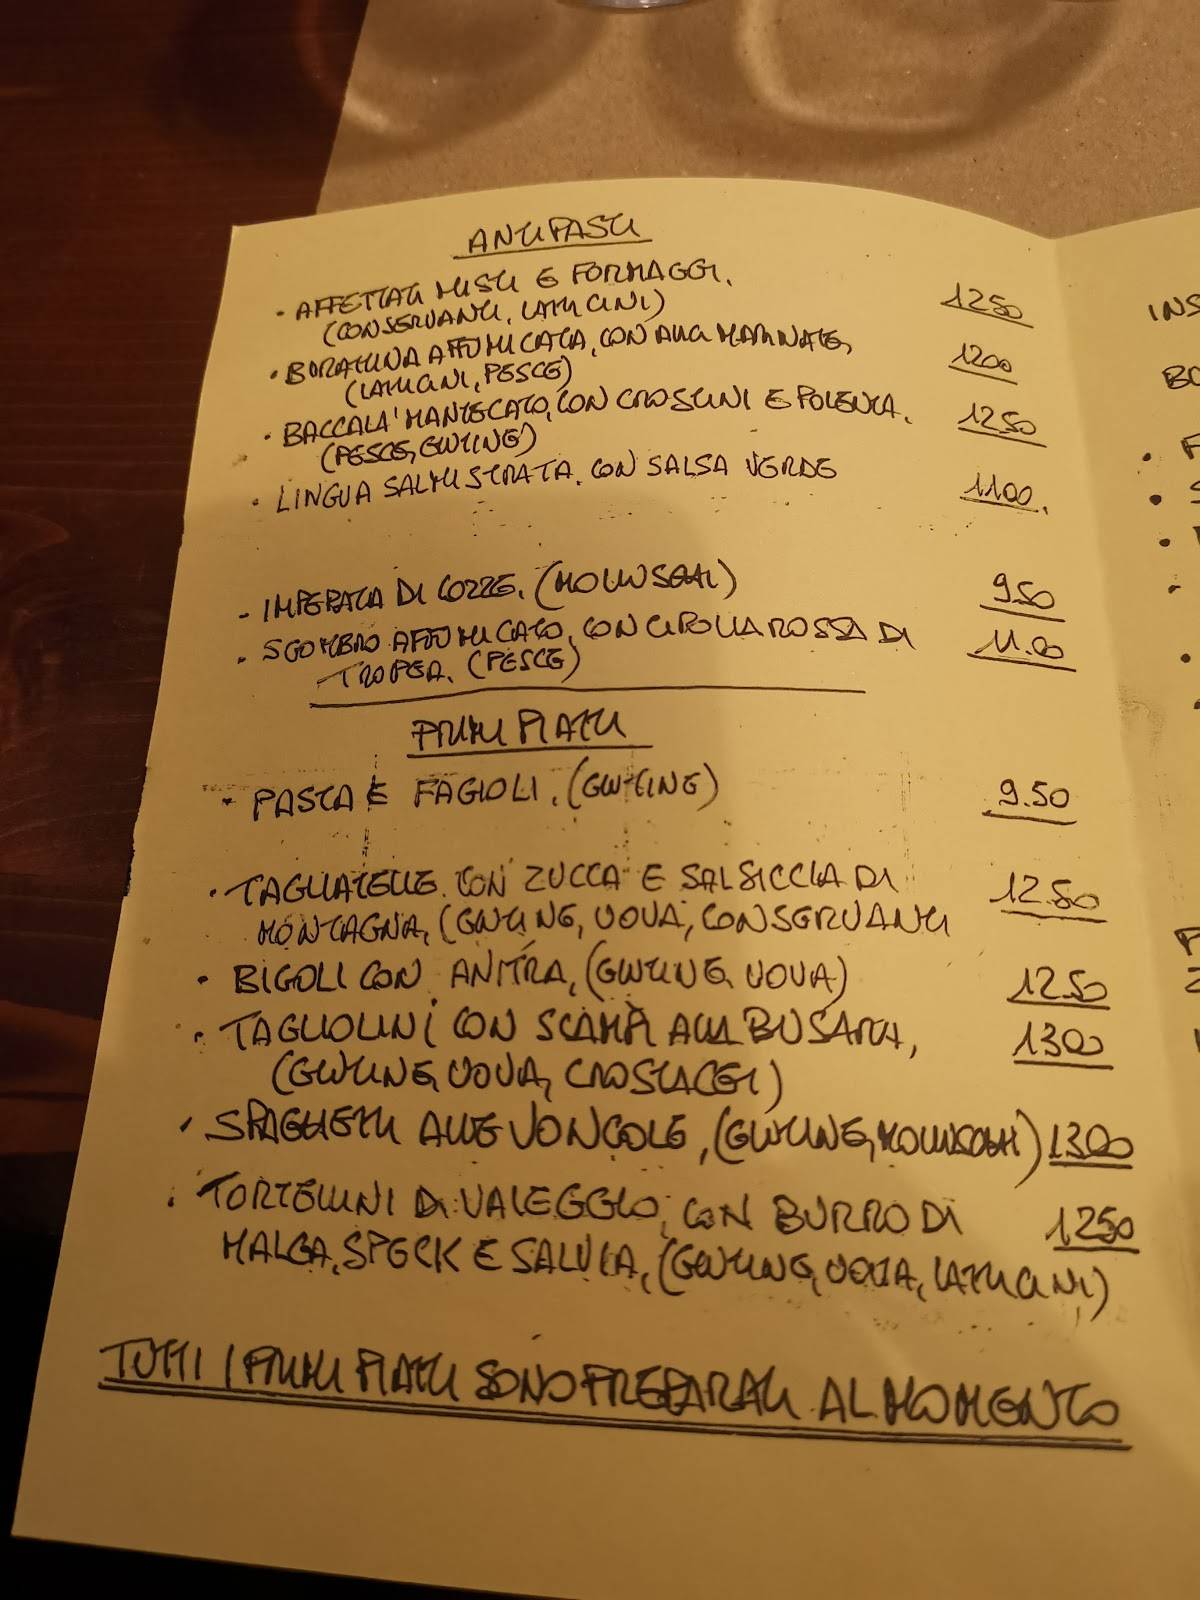 ANTIPASTI
• AFFETTATI MISTI E FORMAGGI. 1250
(CONSERVANTI, LATTICINI)
• BURATTINA AFFUMICATA, CON ALICI MARINATE, 1200
(LATTICINI, PESCE)
• BACCALA' MANTECATO, CON CROSTINI E POLENTA. 1250
(PESCE, GLUTINE)
• LINGUA SALMISTRATA. CON SALSA VERDE 1100.
- IMPEPATA DI COZZE. (MOLLUSCHI) 950
• SGOMBRO AFFUMICATO, CON CIPOLLA ROSSA DI 11.00
TROPEA. (PESCE)
PRIMI PIATTI
• PASTA E FAGIOLI. (GLUTINE) 9.50
• TAGLIATELLE CON ZUCCA E SALSICCIA DI 12.50
MONTAGNA, (GLUTINE, UOVA, CONSERVANTI
• BIGOLI CON ANITRA, (GLUTINE, UOVA) 1250
• TAGLIOLINI CON SCAMPI ALLA BUSARA, 1300
(GLUTINE, UOVA, CROSTACEI)
• SPAGHETTI ALLE VONGOLE, (GLUTINE, MOLLUSCHI) 1300
• TORTELLINI DI VALEGGIO, CON BURRO DI 1250
MALGA, SPECK E SALVIA, (GLUTINE, UOVA, LATTICINI)
TUTTI I PRIMI PIATTI SONO PREPARATI AL MOMENTO